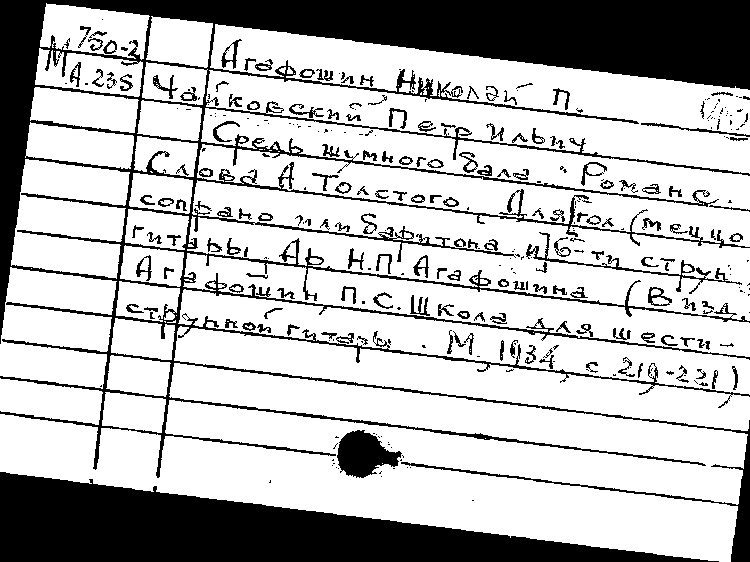 750-2
М А.235
Агафошин Николай П.
Чайковский Петр Ильич.
Средь шумного бала... Романс.
Слова А. Толстого. Для [гол. (меццо
сопрано или баритона и] 6-ти струн
гитары. Ар. Н.П. Агафошина. (В изд.
Агафошин, П.С. Школа для шести-
струнной гитары. М., 1934, с 219-221)